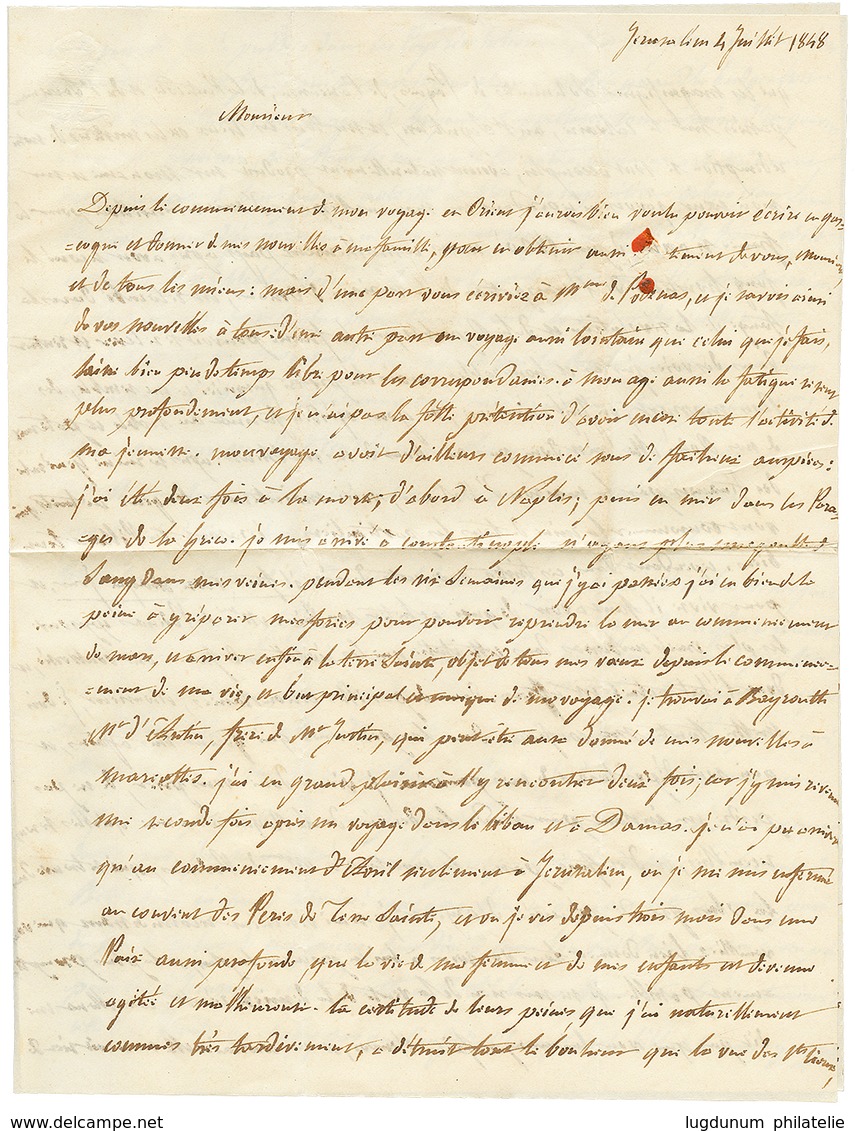 Jerusalem 4 Juillet 1848
Monsieur
Depuis le commencement de mon voyage en Orient j'aurois bien voulu pouvoir écrire en gas=
=cogne et donner de mes nouvelles à ma famille, pour en obtenir aussi de vous, Monsieur
et de tous les miens: mais d'une part vous écriviez à Mme de et je savois ainsi
de vos nouvelles à tous. d'une autre part un voyage aussi lointain que celui que je fais,
laisse bien peu de temps libre pour les correspondances. à mon age aussi la fatigue se sent
plus profondement, et je n'ai pas la folle prétention d'avoir encore toute l'activité de
ma jeunesse. mon voyage avoit d'ailleurs commencé sous de facheux auspices:
j'ai été deux fois à la mort; d'abord à Naples; puis en mer dans les Para=
=ges de la Grece. je suis arrivé à constantinople n'ayant plus une goutte de
Sang dans mes veines. pendant les six Semaines que j'y ai passées j'ai eu bien de la
peine à réparer mes forces pour pouvoir reprendre la mer au commencement
de mars, et arriver enfin à la terre Sainte, objet de tous mes vœux depuis le commence=
=ment de ma vie, et but principal et unique de mon voyage. je trouvai à Bayrouth
Mr d' frere de Mr Justin, qui peut-être aura donné de mes nouvelles à
j'ai eu grand plaisir à l'y rencontrer deux fois; car j'y suis revenu
une seconde fois après un voyage dans le liban et à Damas. je n'ai pu arriver
qu'au commencement d'Avril seulement à Jerusalem, où je me suis enfermé
au couvent des Peres de Terre Sainte, et où je vis depuis trois mois dans une
Paix aussi profonde que la vie de ma femme et de mes enfants est devenue
agitée et malheureuse. la certitude de leurs peines que j'ai naturellement
connues très tardivement, a détruit tout le bonheur que la vue des Sts lieux,
www.delcampe.net
lugdunum philatelie